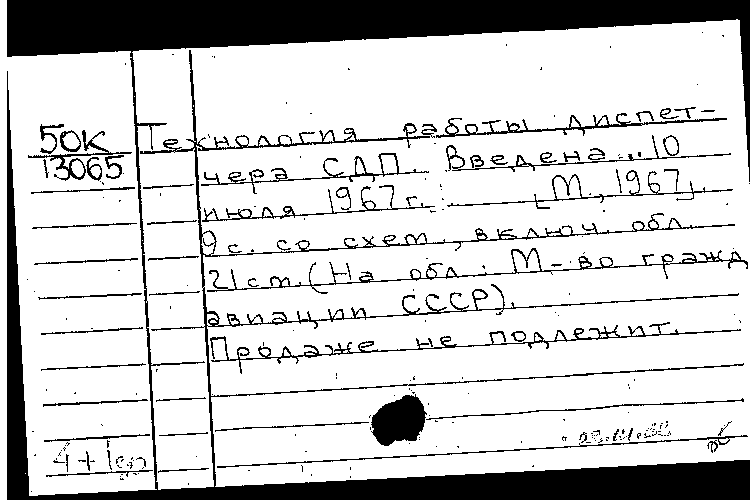 50К Технология работы диспет-
13065 чера СДП. Введена...10
июля 1967 г. [М., 1967].
9 с. со схем., включ. обл.
21 см. (На обл.: М-во гражд
авиации СССР).
Продаже не подлежит.
4+1